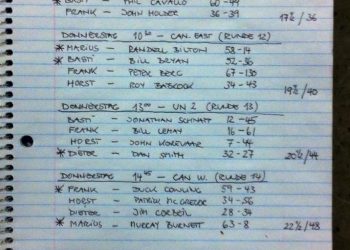 * BASTI - PHIL CAVALLO 60-44
FRANK - JOHN HOLDER 36-39 17½/36
DONNERSTAG 10³⁰ - CAN. EAST (RUNDE 12)
* MARIUS - RANDELL BILTON 58-14
* BASTI - BILL BRYAN 52-36
FRANK - PETER BERG 67-130
HORST - ROY BABCOCK 34-43 19½/40
DONNERSTAG 13⁰⁰ - UN 2 (RUNDE 13)
BASTI - JONATHAN SCHMATT 12-45
FRANK - BILL LEHAY 16-61
HORST - JOHN 7-44
* DIETER - DAN SMITH 32-27 20½/44
DONNERSTAG 14⁴⁵ - CAN W. (RUNDE 14)
* FRANK - COWLING 59-43
HORST - PATRICK MCGREGOR 34-56
DIETER - JIM CORBEIL 28-34
* MARIUS - MURRAY BURNETT 63-8 22½/48